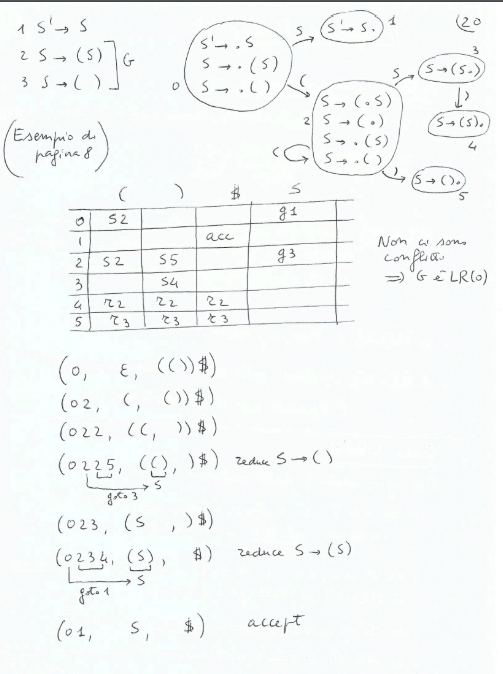 20
1 S' → S
2 S → (S)
3 S → ( )
G
(Esempio di
pagina 8)
0
S' → . S
S → . (S)
S → . ( )
S
S' → S.
1
(
2
S → (. S)
S → (. )
S → . (S)
S → . ( )
(
S
S → (S.)
3
)
S → (S).
4
)
S → ( ).
5
( ) $ S
0 S2 g1
1 acc
2 S2 S5 g3
3 S4
4 r2 r2 r2
5 r3 r3 r3
Non ci sono
conflitti
⇒ G è LR(0)
(0, ε, (())$)
(02, (, ())$)
(022, ((, ))$)
(0225, ((), )$) reduce S → ( )
goto 3 S
(023, (S , )$)
(0234, (S), $) reduce S → (S)
goto 1 S
(01, S, $) accept